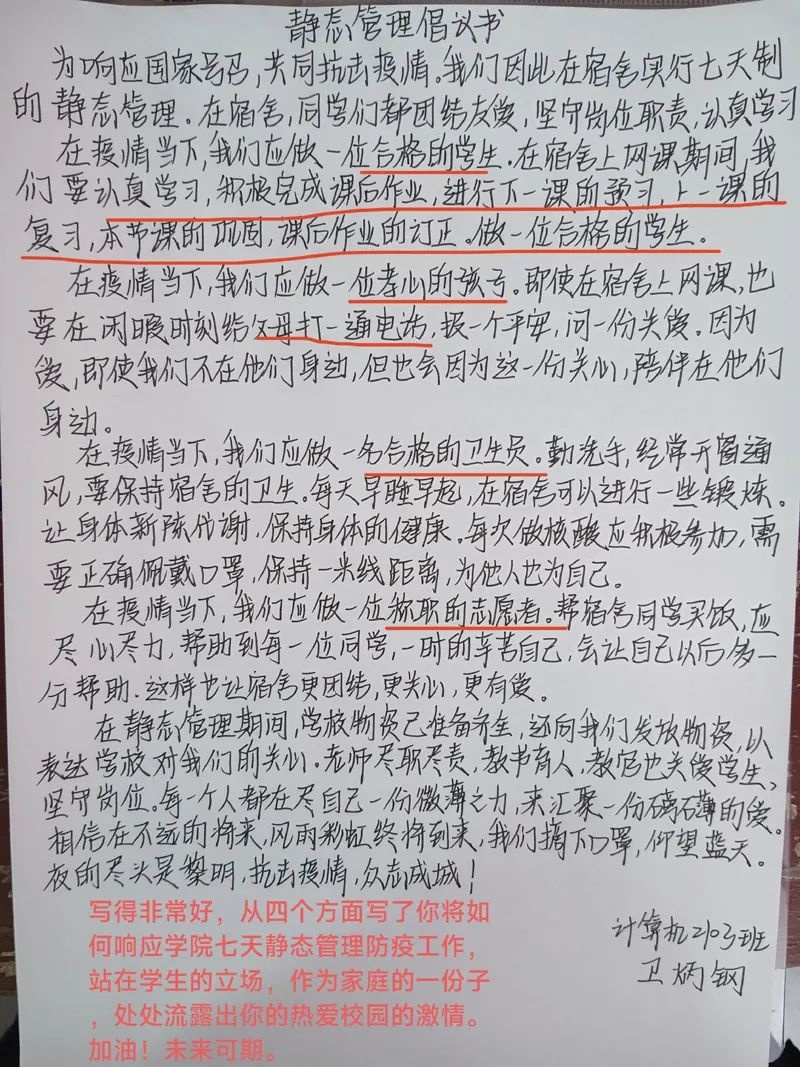 静态管理倡议书
为响应国家号召,共同抗击疫情。我们因此在宿舍实行七天制
的静态管理。在宿舍,同学们都团结友爱,坚守岗位职责,认真学习
在疫情当下,我们应做一位合格的学生。在宿舍上网课期间,我
们要认真学习,积极完成课后作业,进行下一课的预习,上一课的
复习,本节课的巩固,课后作业的订正。做一位合格的学生。
在疫情当下,我们应做一位孝心的孩子。即使在宿舍上网课,也
要在闲暇时刻给父母打一通电话,报一个平安,问一份关爱。因为
爱,即使我们不在他们身边,但也会因为这一份关心,陪伴在他们
身边。
在疫情当下,我们应做一名合格的卫生员。勤洗手,经常开窗通
风,要保持宿舍的卫生。每天早睡早起,在宿舍可以进行一些锻炼。
让身体新陈代谢,保持身体的健康。每次做核酸应积极参加,需
要正确佩戴口罩,保持一米线距离,为他人也为自己。
在疫情当下,我们应做一位称职的志愿者。帮宿舍同学买饭,应
尽心尽力,帮助到每一位同学,一时的辛苦自己,会让自己以后多一
份帮助。这样也让宿舍更团结,更关心,更有爱。
在静态管理期间,学校物资已准备齐全,还向我们发放物资,以
表达学校对我们的关心。老师尽职尽责,教书育人,教官也关爱学生,
坚守岗位。每一个人都在尽自己一份微薄之力,来汇聚一份磅礴的爱。
相信在不远的将来,风雨彩虹终将到来,我们摘下口罩,仰望蓝天。
夜的尽头是黎明,抗击疫情,众志成城!
计算机2103班
卫炳钢
写得非常好,从四个方面写了你将如
何响应学院七天静态管理防疫工作,
站在学生的立场,作为家庭的一份子
,处处流露出你的热爱校园的激情。
加油!未来可期。